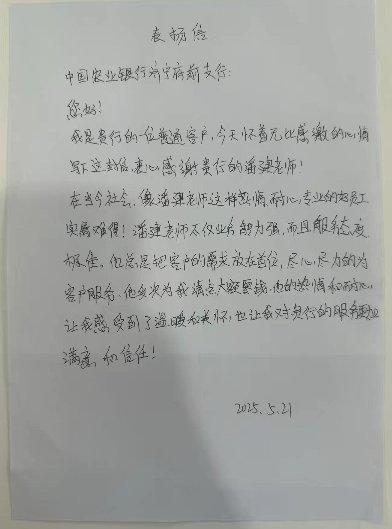 表扬信
中国农业银行济宁府前支行:
您好!
我是贵行的一位普通客户,今天怀着无比感激的心情
写下这封信,衷心感谢贵行的潘建老师!
在当今社会,像潘建老师这样热情耐心,专业的好员工
实属难得!潘建老师不仅业务能力强,而且服务态度
极佳。他总是把客户的需求放在首位,尽心尽力的为
客户服务。他多次为我清点大额零钱,他的热情和耐心,
让我感受到了温暖和关怀,也让我对贵行的服务更加
满意和信任!
2025.5.21